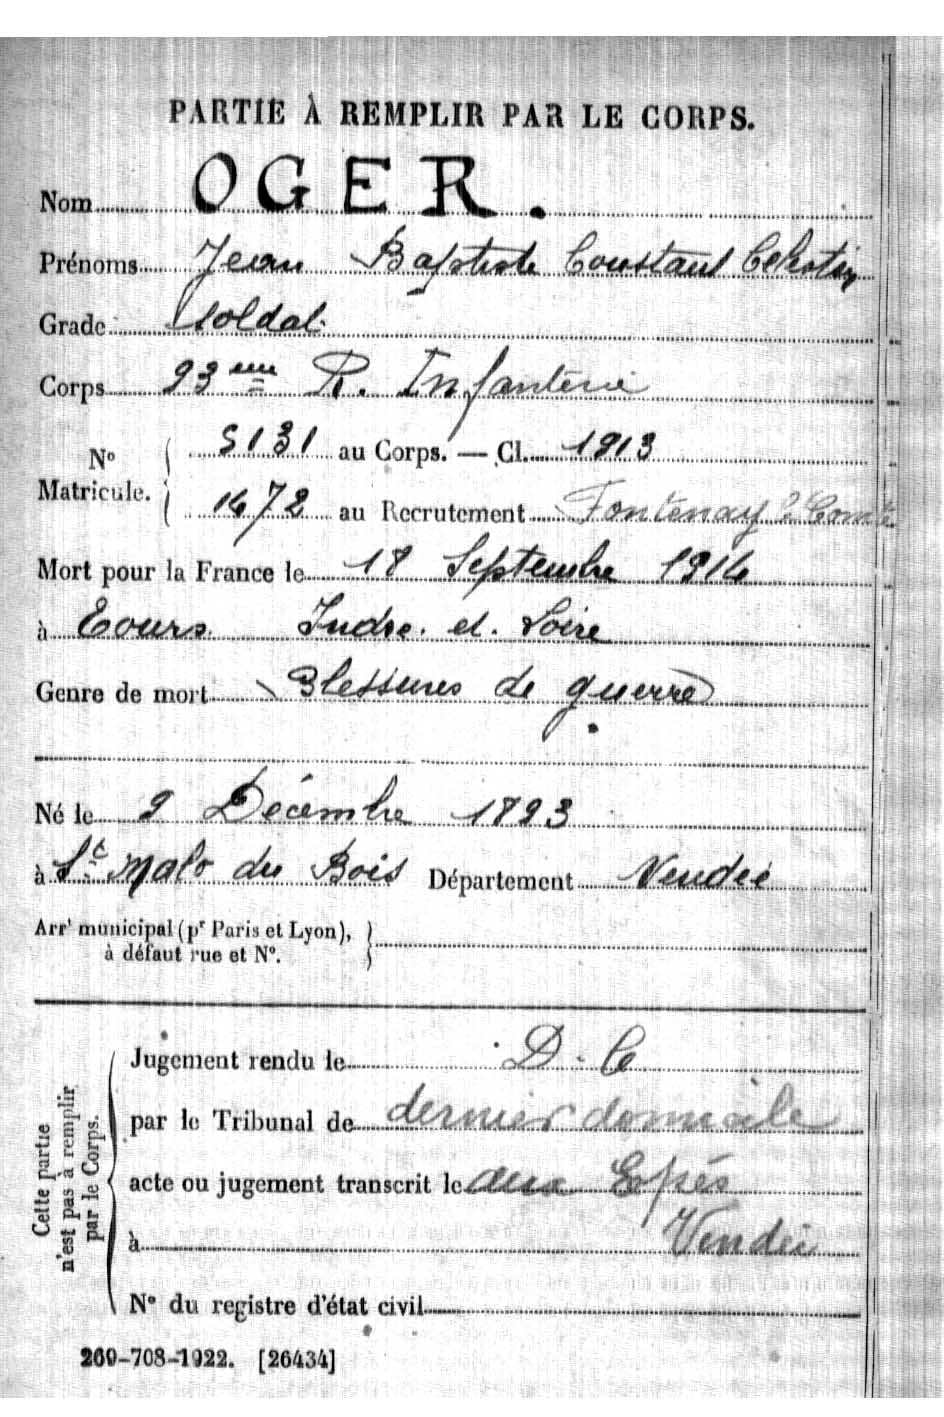 PARTIE À REMPLIR PAR LE CORPS.
Nom OGER.
Prénoms Jean Baptiste Constant Celestin
Grade Soldat.
Corps 93ème R. Infanterie
N° Matricule. 5131 au Corps. — Cl. 1913
1472 au Recrutement Fontenay le Comte
Mort pour la France le 18 Septembre 1914
à Tours Indre. et. Loire
Genre de mort Blessures de guerre
Né le 9 Décembre 1893
à St Malo du Bois Département Vendée
Arrt municipal (pr Paris et Lyon),
à défaut rue et N°.
Cette partie n'est pas à remplir par le Corps.
Jugement rendu le D. C
par le Tribunal de dernier domicile
acte ou jugement transcrit le aux Epés
à Vendée
N° du registre d'état civil
269-708-1922. [26434]